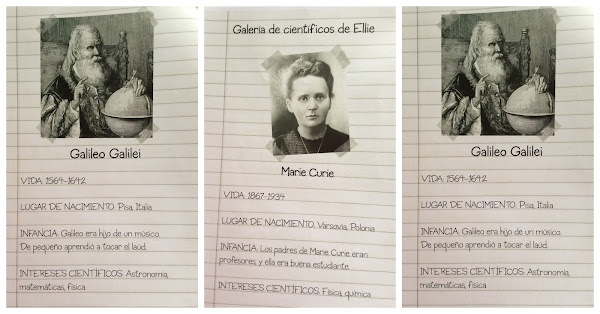 Galileo Galilei
VIDA. 1564-1642
LUGAR DE NACIMIENTO. Pisa, Italia
INFANCIA. Galileo era hijo de un músico.
De pequeño aprendió a tocar el laúd.
INTERESES CIENTÍFICOS. Astronomía,
matemáticas, física
Galería de científicos de Ellie
Marie Curie
VIDA. 1867-1934
LUGAR DE NACIMIENTO. Varsovia, Polonia
INFANCIA. Los padres de Marie Curie eran
profesores, y ella era buena estudiante.
INTERESES CIENTÍFICOS. Física, química
Galileo Galilei
VIDA. 1564-1642
LUGAR DE NACIMIENTO. Pisa, Italia
INFANCIA. Galileo era hijo de un músico.
De pequeño aprendió a tocar el laúd.
INTERESES CIENTÍFICOS. Astronomía,
matemáticas, física